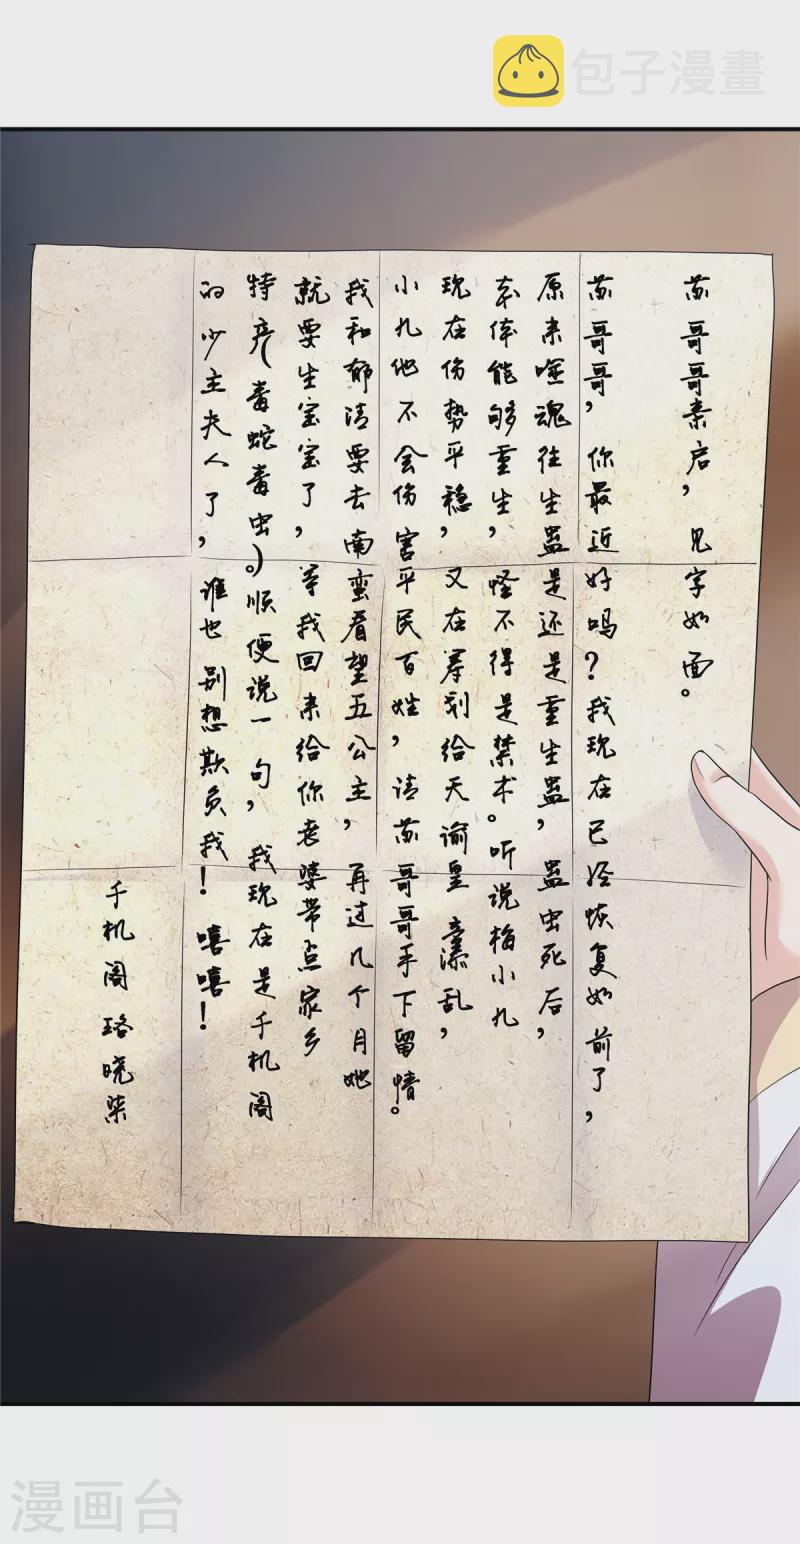 包子漫畫
苏哥哥亲启，见字如面。
苏哥哥，你最近好吗？我现在已经恢复如前了，
原来噬魂往生蛊是还是重生蛊，蛊虫死后，
本体能够重生，怪不得是禁术。听说梅小九
现在伤势平稳，又在筹划给天谕皇室添乱，
小九他不会伤害平民百姓，请苏哥哥手下留情。
我和郁清要去南蛮看望五公主，再过几个月她
就要生宝宝了，等我回来给你老婆带点家乡
特产(毒蛇毒虫。)顺便说一句，我现在是千机阁
的少主夫人了，谁也别想欺负我！嘻嘻！
千机阁 珞晓柒
漫画台